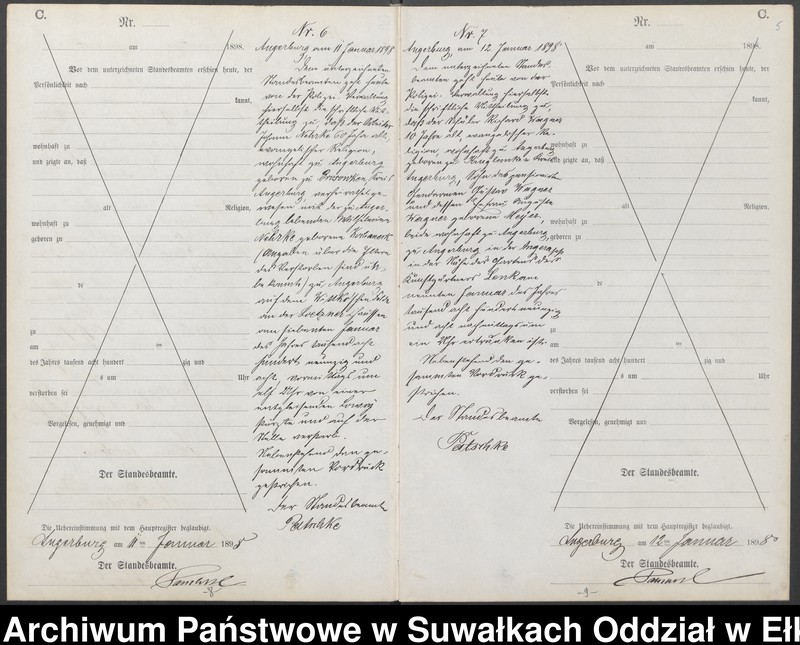 C.
Nr.
am 1898.
Vor dem unterzeichneten Standesbeamten erschien heute, der
Persönlichkeit nach
kannt,
wohnhaft zu
und zeigte an, daß
alt Religion,
wohnhaft zu
geboren zu
de
zu
am ten
des Jahres tausend acht hundert zig und
s um Uhr
verstorben sei
Vorgelesen, genehmigt und
Der Standesbeamte.
Die Uebereinstimmung mit dem Hauptregister beglaubigt.
Angerburg am 11 ten Januar 1898
Der Standesbeamte.
-8-
Nr. 6
Angerburg am 11 Januar 1898
Dem unterzeichneten
Standesbeamten geht heute
von der Polizei Verwaltung
hierselbst die schriftliche Mit-
theilung zu, daß der Arbeiter
Nehrke 60 Jahre alt,
evangelischer Religion,
wohnhaft zu Angerburg
geboren zu Kreis
Angerburg verheirathet ge-
wesen mit der zu Anger-
burg lebenden Wilhelmine
Nehrke geborene
(Angaben über die Eltern
des Verstorben sind un-
bekannt) zu Angerburg
auf dem
an der Loetzner Chaussee
am siebenten Januar
des Jahres tausend acht
hundert neunzig und
acht, vormittags um
elf Uhr von einer
Lowry
stürzte und auf der
Stelle verstarb.
Nebenstehend den ge-
sammten Vordruck
gestrichen.
Der Standesbeamte
Patschke
Nr. 7
Angerburg, am 12 Januar 1898
Dem unterzeichneten Standes-
beamten geht heute von der
Polizei-Verwaltung hierselbst
die schriftliche Mittheilung zu,
daß der Schüler Richard Wagner
10 Jahre alt, evangelischer Re-
ligion, wohnhaft zu Angerburg
geboren zu Kreis
Angerburg, Sohn des pensionirten
Gendarmen Gustav Wagner
und dessen Ehefrau Auguste
Wagner geborene Meyer
beide wohnhaft zu Angerburg,
zu Angerburg in der Angerapp
in der Nähe des Gartens des
Kunstgärtners Lenkau
neunten Januar des Jahres
tausend acht hundert neunzig
und acht nachmittags um
ein Uhr ertrunken ist.
Nebenstehend den ge-
sammten Vordruck ge-
strichen.
Der Standesbeamte
Patschke
C.
5
Nr.
am 1898.
Vor dem unterzeichneten Standesbeamten erschien heute, der
Persönlichkeit nach
kannt,
wohnhaft zu
und zeigte an, daß
alt Religion,
wohnhaft zu
geboren zu
de
zu
am ten
des Jahres tausend acht hundert zig und
s um Uhr
verstorben sei
Vorgelesen, genehmigt und
Der Standesbeamte.
Die Uebereinstimmung mit dem Hauptregister beglaubigt.
Angerburg am 12 ten Januar 1898
Der Standesbeamte.
-9-
Archiwum Państwowe w Suwałkach Oddział w Ełk